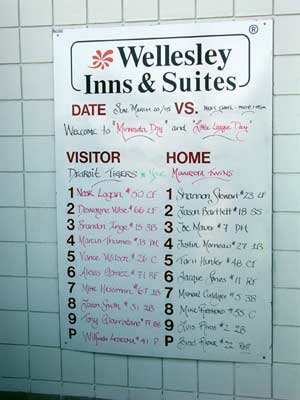 ®
Wellesley
Inns & Suites
DATE Sun. March 20/05 VS.
Welcome to "Minnesota Day" and "Little League Day"
VISITOR HOME
Detroit Tigers Minnesota Twins
1 Nook Logan #50 CF 1 Shannon Stewart #23 LF
2 Dewayne Wise #66 LF 2 Jason Bartlett #18 SS
3 Brandon Inge #15 3B 3 Joe Mauer #7 DH
4 Marcus Thames #33 DH 4 Justin Morneau #27 1B
5 Vance Wilson #26 C 5 Torii Hunter #48 CF
6 Alexis Gomez #71 RF 6 Jacque Jones #11 RF
7 Mike Hessman #67 1B 7 Michael Cuddyer #5 3B
8 Jason Smith #31 2B 8 Mike Redmond #55 C
9 Tony Giarratano 9 Luis Rivas #2 2B
P Wilfredo Ledezma #41 P P Brad Radke #22 RHP